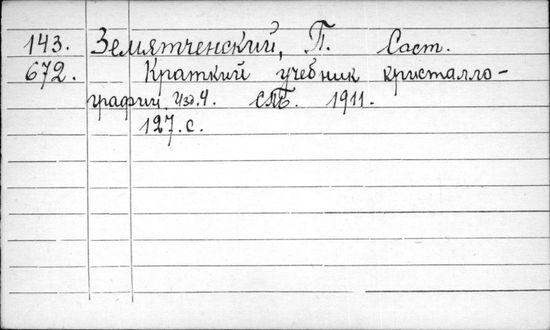 143. Земятченский, П. Сост.
672. Краткий учебник кристалло-
графии. Изд. 4. СПБ. 1911.
127. с.